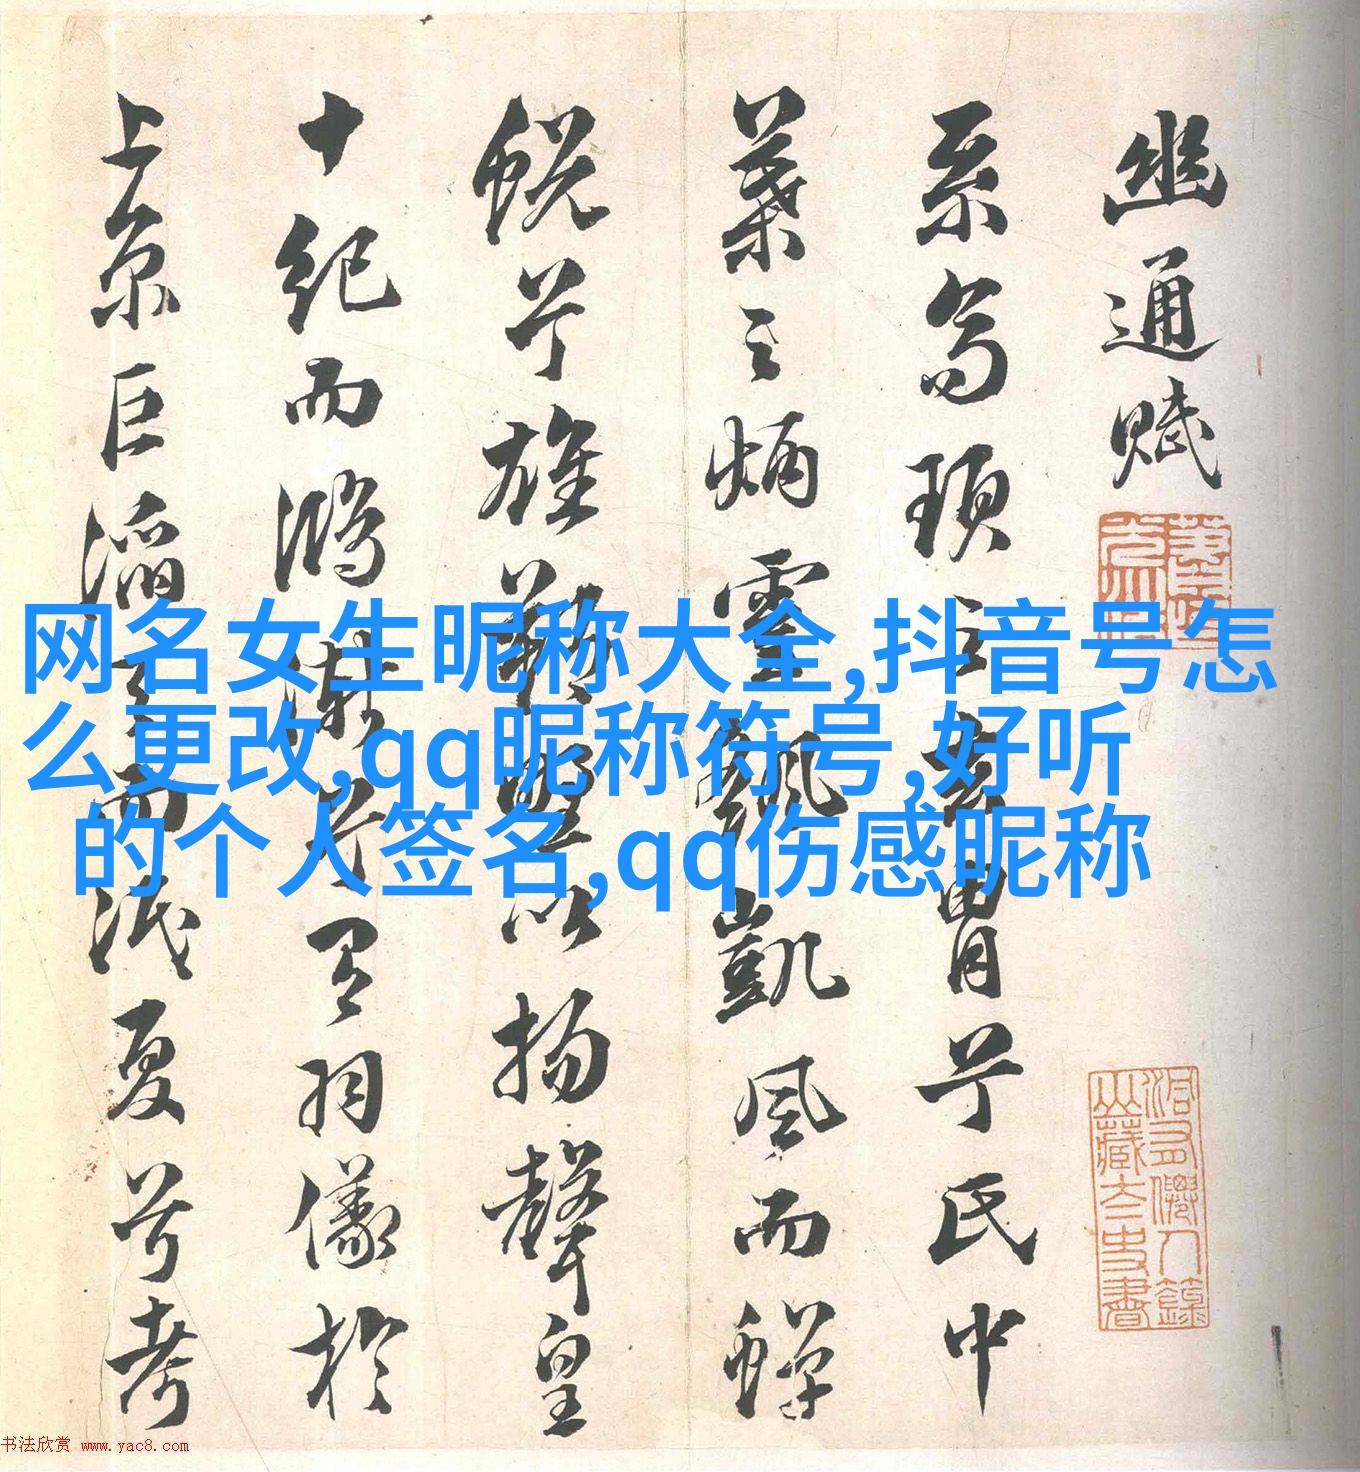 幽通賦
系高頊之玄冑兮氏中
葉之炳靈飖凱風而蟬
蛻兮雄朔野以颺聲皇
十紀而鴻漸兮有羽儀於
上京巨滔天而泯夏兮考
网名女生昵称大全,抖音号怎
么更改,qq昵称符号,好听
的个人签名,qq伤感昵称
书法欣赏 www.yac8.com